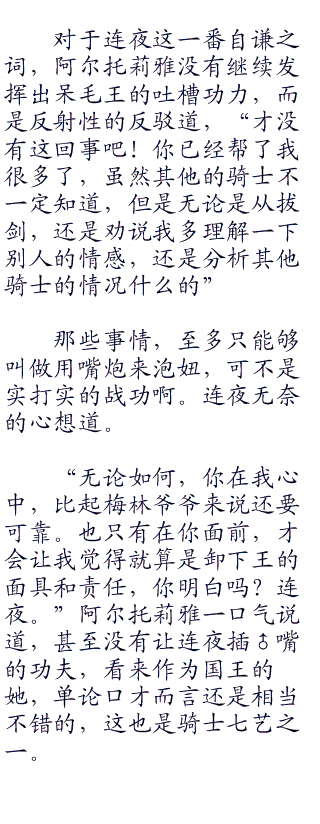 对于连夜这一番自谦之
词，阿尔托莉雅没有继续发
挥出呆毛王的吐槽功力，而
是反射性的反驳道，“才没
有这回事吧！你已经帮了我
很多了，虽然其他的骑士不
一定知道，但是无论是从拔
剑，还是劝说我多理解一下
别人的情感，还是分析其他
骑士的情况什么的”
那些事情，至多只能够
叫做用嘴炮来泡妞，可不是
实打实的战功啊。连夜无奈
的心想道。
“无论如何，你在我心
中，比起梅林爷爷来说还要
可靠。也只有在你面前，才
会让我觉得就算是卸下王的
面具和责任，你明白吗？连
夜。”阿尔托莉雅一口气说
道，甚至没有让连夜插♂嘴
的功夫，看来作为国王的
她，单论口才而言还是相当
不错的，这也是骑士七艺之
一。